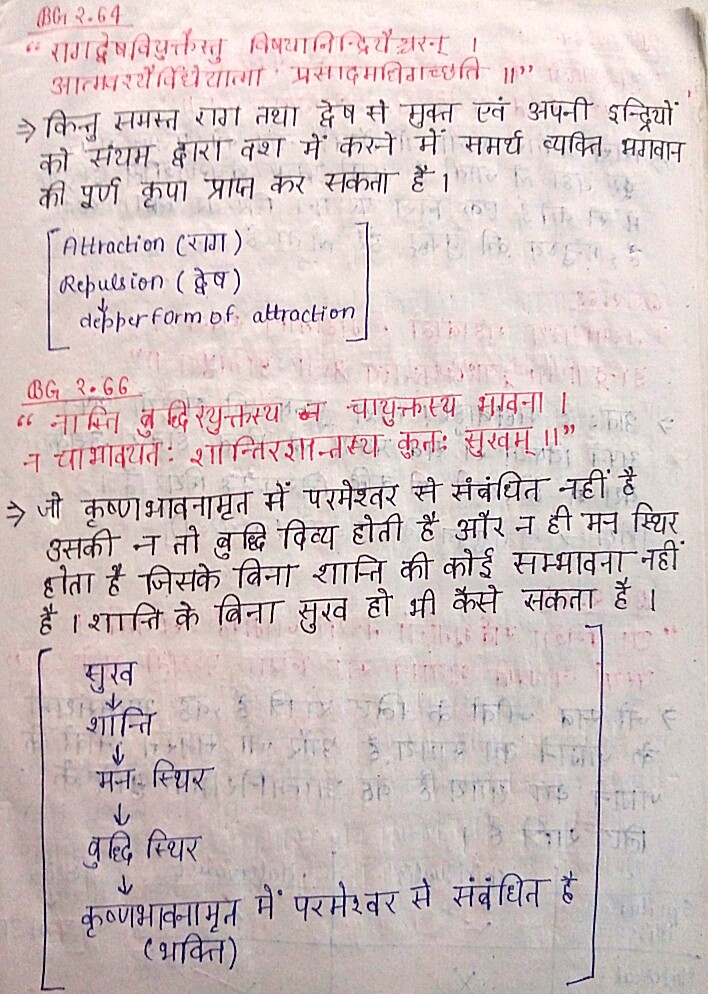 BG 2.64
“रागद्वेषवियुक्तैस्तु विषयानिन्द्रियैश्चरन् ।
आत्मवश्यैर्विधेयात्मा प्रसादमधिगच्छति ॥”
⇒ किन्तु समस्त राग तथा द्वेष से मुक्त एवं अपनी इन्द्रियों
को संयम द्वारा वश में करने में समर्थ व्यक्ति भगवान
की पूर्ण कृपा प्राप्त कर सकता है ।
Attraction (राग)
Repulsion (द्वेष)
↓
depper form of attraction
BG 2.66
“ नास्ति बुद्धिरयुक्तस्य न चायुक्तस्य भावना ।
न चाभावयतः शान्तिरशान्तस्य कुतः सुखम् ॥”
⇒ जो कृष्णभावनामृत में परमेश्वर से संबंधित नहीं है
उसकी न तो बुद्धि दिव्य होती है और न ही मन स्थिर
होता है जिसके बिना शान्ति की कोई सम्भावना नहीं
है । शान्ति के बिना सुख हो भी कैसे सकता है ।
सुख
↓
शान्ति
↓
मन स्थिर
↓
बुद्धि स्थिर
↓
कृष्णभावनामृत में परमेश्वर से संबंधित है
(भक्ति)